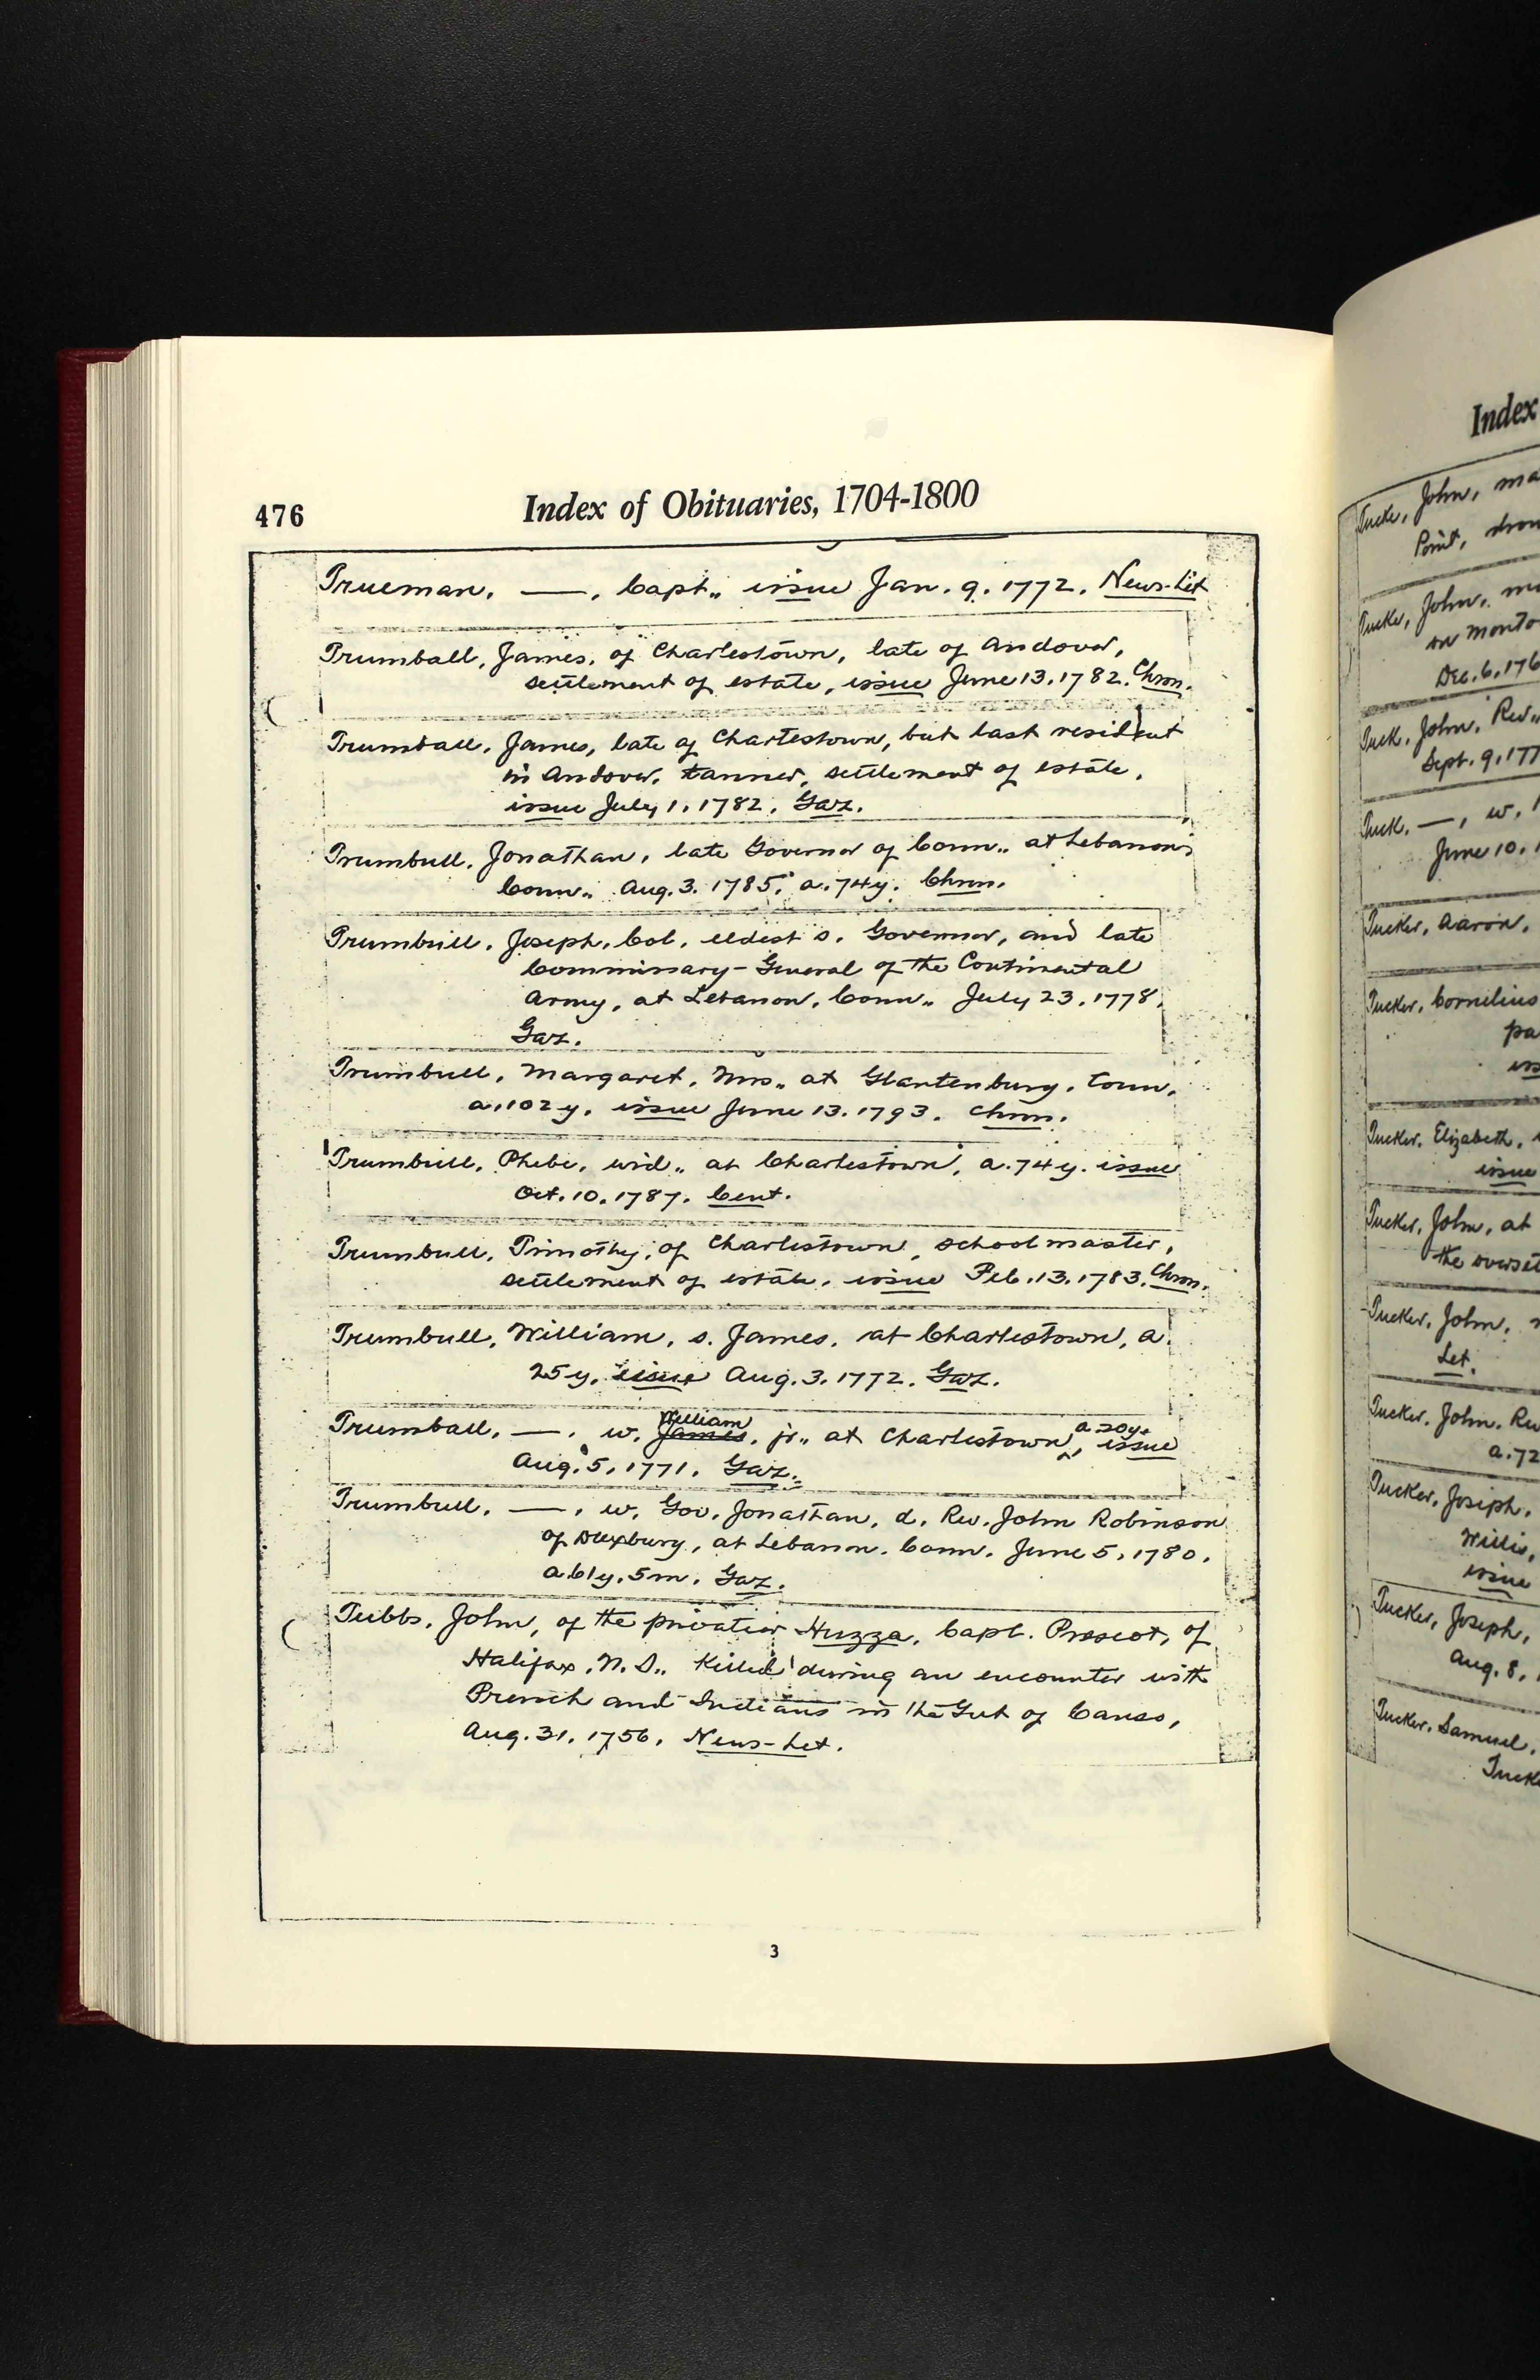 476
Index of Obituaries, 1704-1800
Trueman, —, Capt., issue Jan. 9, 1772. News-Let
Trumball, James, of Charlestown, late of Andover,
settlement of estate, issue June 13, 1782. Chron.
Trumball, James, late of Charlestown, but last resident
in Andover, tanner, settlement of estate,
issue July 1, 1782. Gaz.
Trumbull, Jonathan, late Governor of Conn., at Lebanon,
Conn., Aug. 3. 1785, a. 74y. Chron.
Trumbull, Joseph, Col., eldest s. Governor, and late
Commissary-General of the Continental
Army, at Lebanon, Conn., July 23, 1778.
Gaz.
Trumbull, Margaret, Mrs., at Glantenburg, Conn.
a. 102 y. issue June 13, 1793. Chron.
Trumbull, Phebe, wid., at Charlestown, a. 74 y. issue
Oct. 10, 1787. Cent.
Trumbull, Timothy, of Charlestown, schoolmaster,
settlement of estate, issue Feb. 13, 1783. Chron.
Trumbull, William, s. James, at Charlestown, a.
25 y. issue Aug. 3, 1772. Gaz.
Trumball, —, w. William James, jr., at Charlestown, a 20y. issue
Aug. 5, 1771. Gaz.
Trumbull, —, w. Gov. Jonathan, d. Rev. John Robinson
of Duxbury, at Lebanon, Conn. June 5, 1780.
a. 61y. 5m. Gaz.
Tubbs, John, of the privatier Huzza, Capt. Prescot, of
Halifax, N.S., killed during an encounter with
French and Indians in the Gut of Canso,
Aug. 31, 1756. News-Let.
3
Index
Tucke, John, ma
Point, drow
Tucke, John,
on
Dec. 6, 176
Tuck, John, Rev.,
Sept. 9, 177
Tuck, —, w.
June 10,
Tucker, Aaron,
Tucker, Cornelius
pa
iss
Tucker, Elizabeth,
issue
Tucker, John, at
the overset
Tucker, John,
Let.
Tucker, John, Rev
a. 72
Tucker, Joseph,
Willis,
issue
Tucker, Joseph,
Aug. 8,
Tucker, Samuel,
Tucke